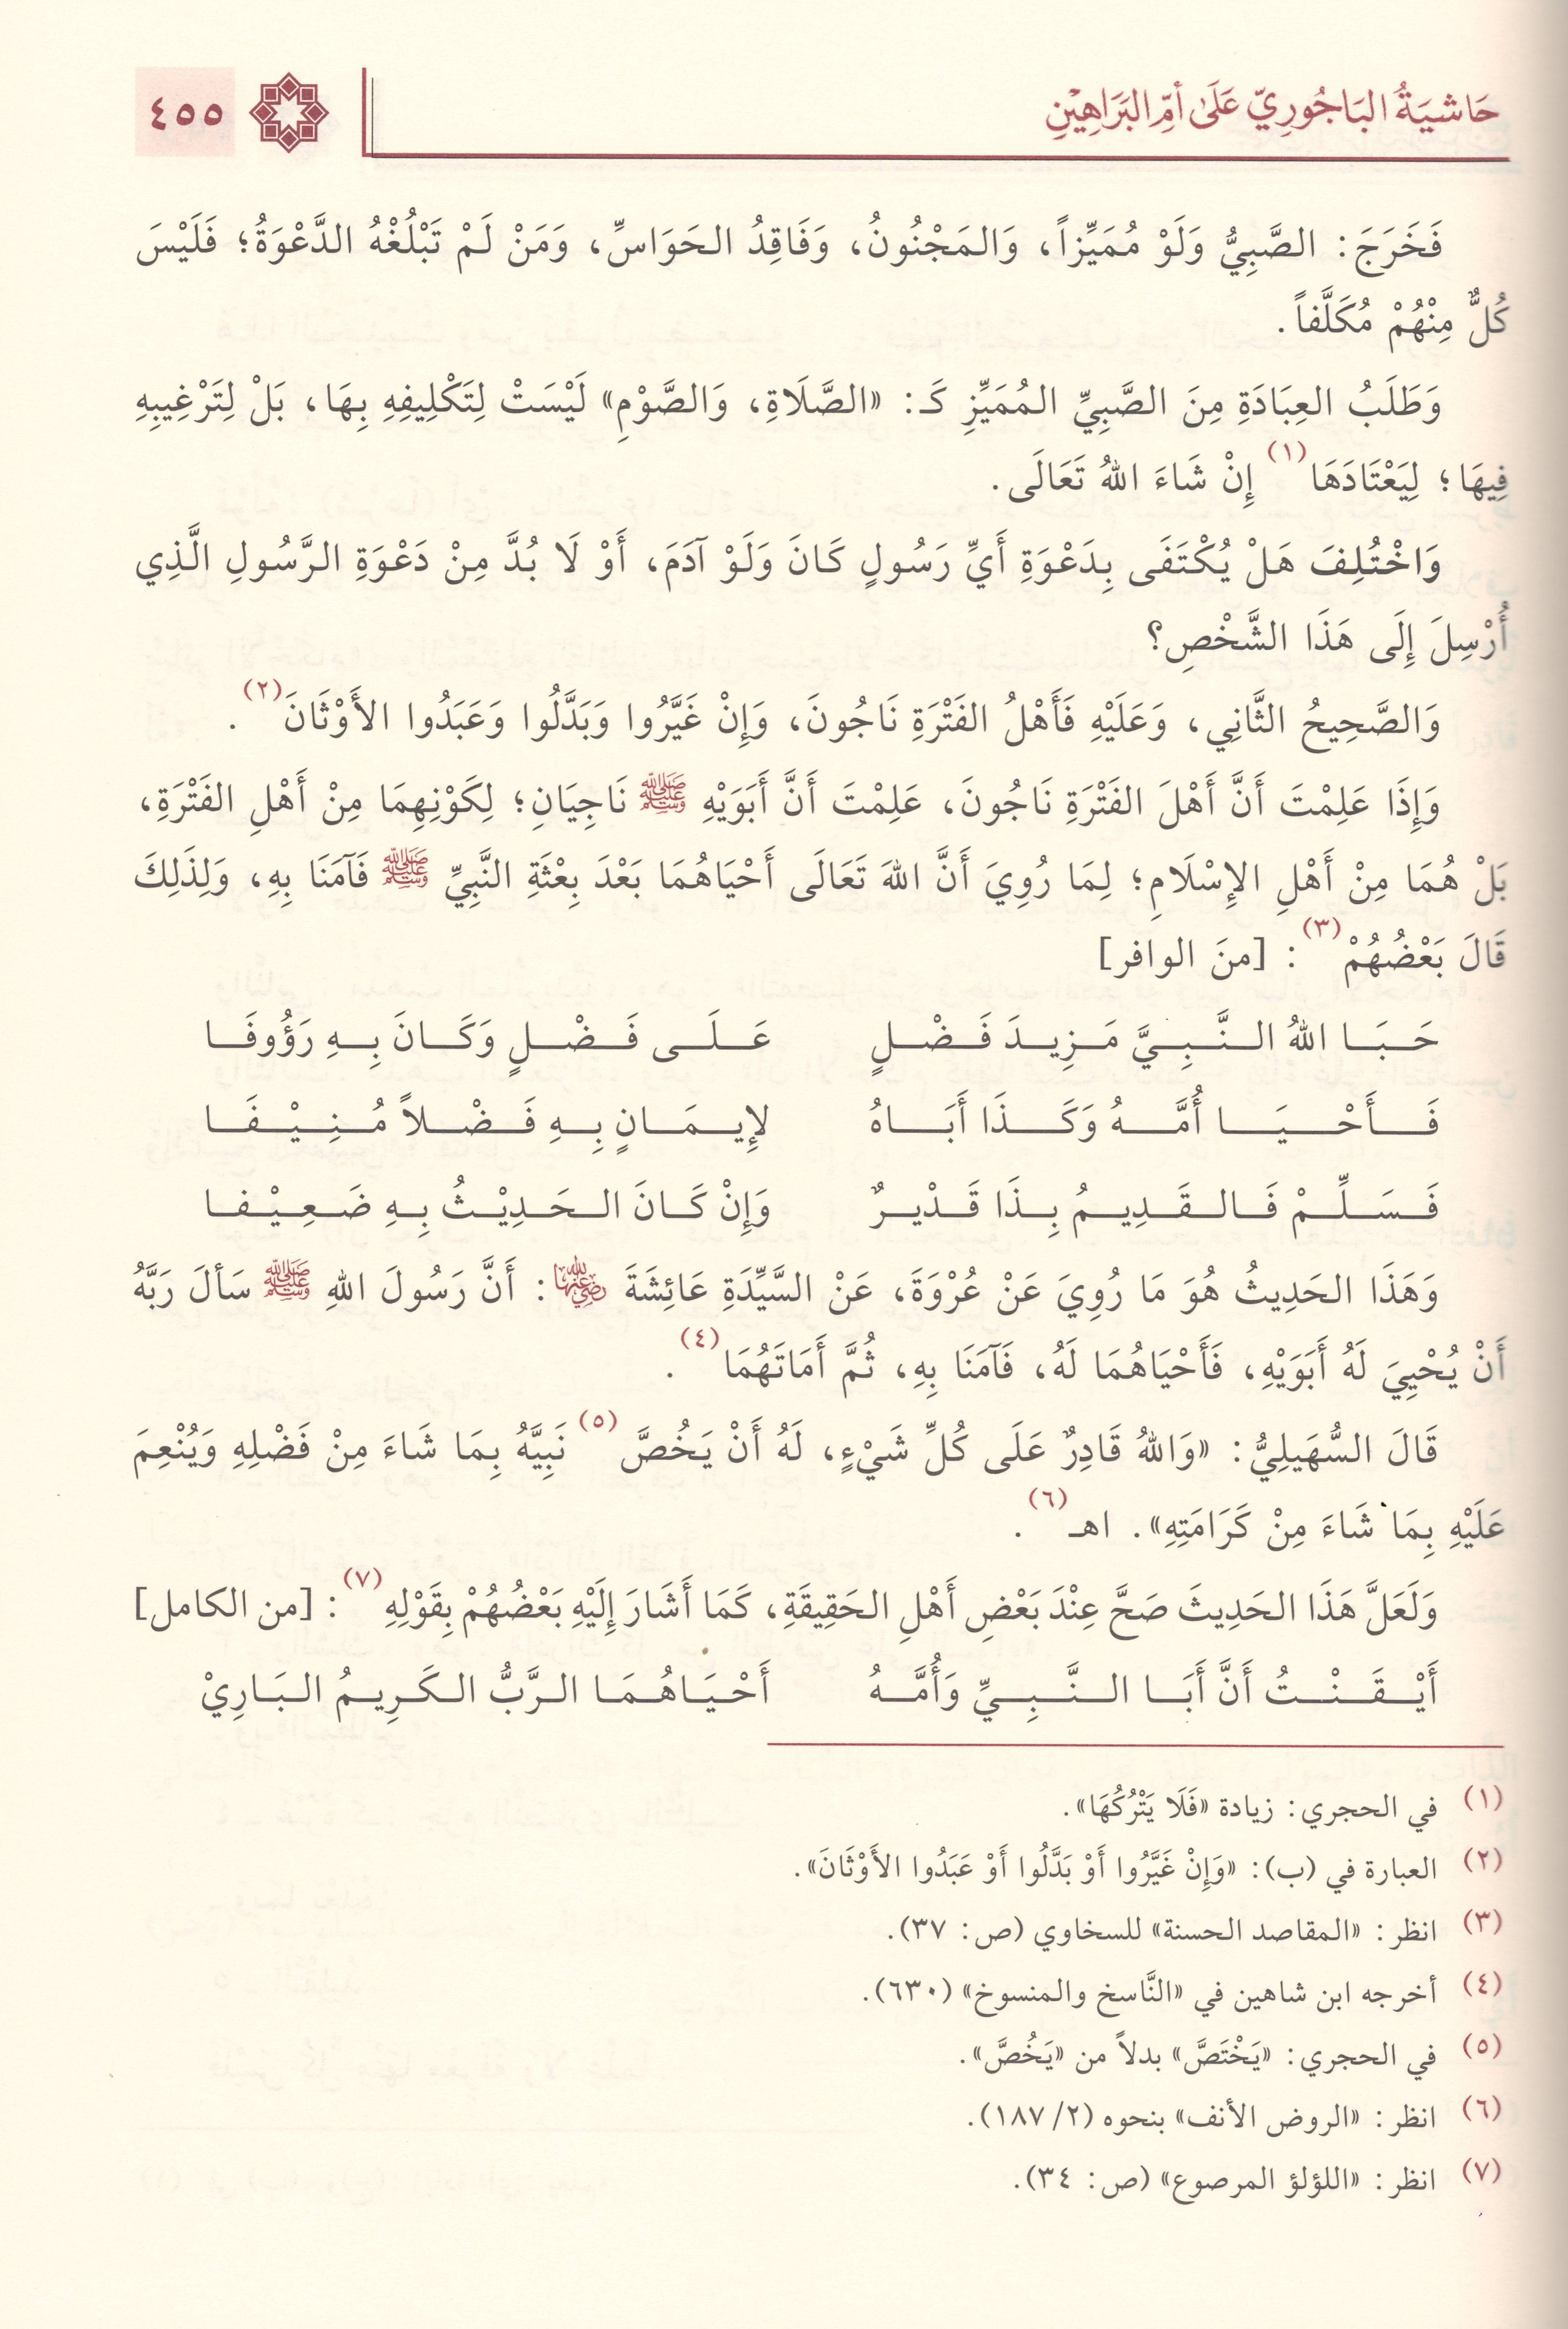 حَاشِيَةُ البَاجُورِيّ عَلَى أُمِّ البَرَاهِيْنِ
٤٥٥
فَخَرَجَ: الصَّبِيُّ وَلَوْ مُمَيِّزاً، وَالمَجْنُونُ، وَفَاقِدُ الحَوَاسِّ، وَمَنْ لَمْ تَبْلُغْهُ الدَّعْوَةُ؛ فَلَيْسَ
كُلٌّ مِنْهُمْ مُكَلَّفاً.
وَطَلَبُ العِبَادَةِ مِنَ الصَّبِيِّ المُمَيِّزِ كَـ: «الصَّلَاةِ، وَالصَّوْمِ» لَيْسَتْ لِتَكْلِيفِهِ بِهَا، بَلْ لِتَرْغِيبِهِ
فِيهَا؛ لِيَعْتَادَهَا(١) إِنْ شَاءَ اللهُ تَعَالَى.
وَاخْتُلِفَ هَلْ يُكْتَفَى بِدَعْوَةِ أَيِّ رَسُولٍ كَانَ وَلَوْ آدَمَ، أَوْ لَا بُدَّ مِنْ دَعْوَةِ الرَّسُولِ الَّذِي
أُرْسِلَ إِلَى هَذَا الشَّخْصِ؟
وَالصَّحِيحُ الثَّانِي، وَعَلَيْهِ فَأَهْلُ الفَتْرَةِ نَاجُونَ، وَإِنْ غَيَّرُوا وَبَدَّلُوا وَعَبَدُوا الأَوْثَانَ(٢).
وَإِذَا عَلِمْتَ أَنَّ أَهْلَ الفَتْرَةِ نَاجُونَ، عَلِمْتَ أَنَّ أَبَوَيْهِ ﷺ نَاجِيَانِ؛ لِكَوْنِهِمَا مِنْ أَهْلِ الفَتْرَةِ،
بَلْ هُمَا مِنْ أَهْلِ الإِسْلَامِ؛ لِمَا رُوِيَ أَنَّ اللهَ تَعَالَى أَحْيَاهُمَا بَعْدَ بِعْثَةِ النَّبِيِّ ﷺ فَآمَنَا بِهِ، وَلِذَلِكَ
قَالَ بَعْضُهُمْ(٣): [منَ الوافر]
حَبَا اللهُ النَّبِيَّ مَزِيدَ فَضْلٍ عَلَى فَضْلٍ وَكَانَ بِهِ رَؤُوفَا
فَأَحْيَا أُمَّهُ وَكَذَا أَبَاهُ لإِيمَانٍ بِهِ فَضْلاً مُنِيْفَا
فَسَلِّمْ فَالقَدِيمُ بِذَا قَدْيرٌ وَإِنْ كَانَ الحَدِيْثُ بِهِ ضَعِيْفا
وَهَذَا الحَدِيثُ هُوَ مَا رُوِيَ عَنْ عُرْوَةَ، عَنْ السَّيِّدَةِ عَائِشَةَ رضي الله عنها: أَنَّ رَسُولَ اللهِ ﷺ سَألَ رَبَّهُ
أَنْ يُحْيِيَ لَهُ أَبَوَيْهِ، فَأَحْيَاهُمَا لَهُ، فَآمَنَا بِهِ، ثُمَّ أَمَاتَهُمَا(٤).
قَالَ السُّهَيلِيُّ: «وَاللهُ قَادِرٌ عَلَى كُلِّ شَيْءٍ، لَهُ أَنْ يَخُصَّ(٥) نَبِيَّهُ بِمَا شَاءَ مِنْ فَضْلِهِ وَيُنْعِمَ
عَلَيْهِ بِمَا شَاءَ مِنْ كَرَامَتِهِ». اهـ(٦).
وَلَعَلَّ هَذَا الحَدِيثَ صَحَّ عِنْدَ بَعْضِ أَهْلِ الحَقِيقَةِ، كَمَا أَشَارَ إِلَيْهِ بَعْضُهُمْ بِقَوْلِهِ(٧): [من الكامل]
أَيْقَنْتُ أَنَّ أَبَا النَّبِيِّ وَأُمَّهُ أَحْيَاهُمَا الرَّبُّ الكَرِيمُ البَارِيْ
(١) في الحجري: زيادة «فَلَا يَتْرُكُهَا».
(٢) العبارة في (ب): «وَإِنْ غَيَّرُوا أَوْ بَدَّلُوا أَوْ عَبَدُوا الأَوْثَانَ».
(٣) انظر: «المقاصد الحسنة» للسخاوي (ص: ٣٧).
(٤) أخرجه ابن شاهين في «النَّاسخ والمنسوخ» (٦٣٠).
(٥) في الحجري: «يَخْتَصَّ» بدلاً من «يَخُصَّ».
(٦) انظر: «الروض الأنف» بنحوه (٢/ ١٨٧).
(٧) انظر: «اللؤلؤ المرصوع» (ص: ٣٤).